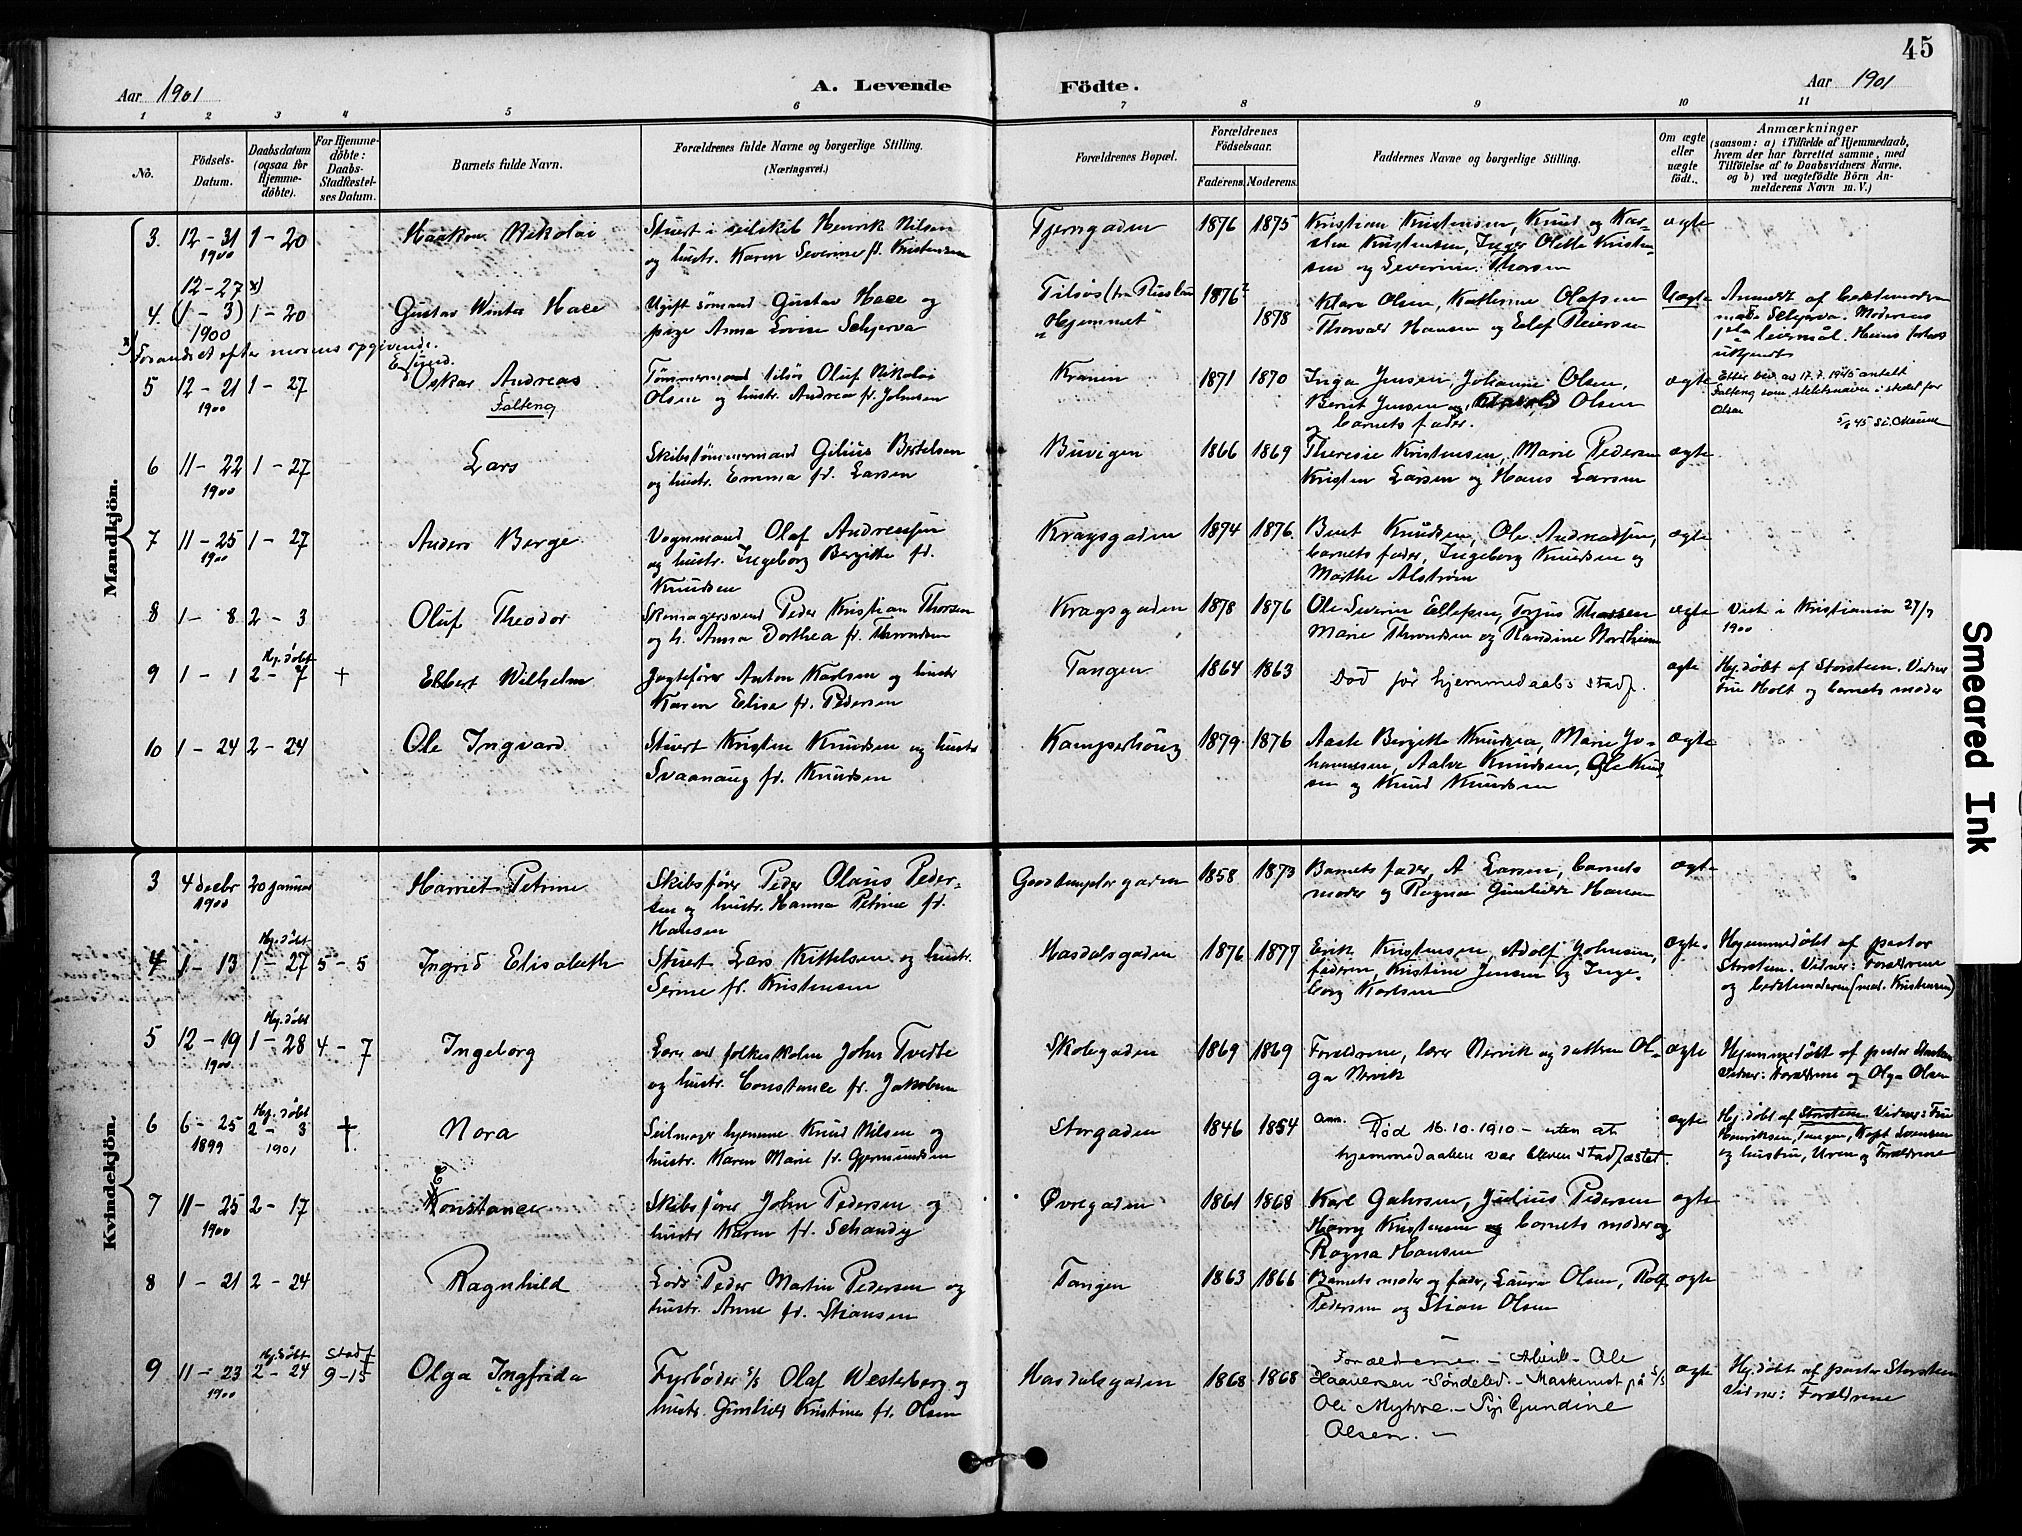 45
Aar 1901
A. Levende Födte.
Aar 1901
1 2 3 4 5 6 7 8 9 10 11
No.
Födsels-
Datum.
Daabsdatum
(ogsaa for
Hjemme-
döbte).
For Hjemme-
döbte:
Daabs-
Stadfæstel-
ses Datum.
Barnets fulde Navn.
Forældrenes fulde Navne og borgerlige Stilling.
(Næringsvei.)
Forældrenes Bopæl.
Forældrenes
Födselsaar.
Faderens. Moderens.
Faddernes Navne og borgerlige Stilling.
Om ægte
eller
uægte
födt.
Anmærkninger
(saasom: a) i Tilfælde af Hjemmedaab,
hvem der har forrettet samme, med
Tilföielse af to Daabsvidners Navne,
og b) ved uægtefödte Börn An-
melderens Navn m. V.)
Mandkjön.
3. 12-31 1900 1-20 Haakon Nikolai
Stuert i seilskib Henrik Nilsen
og hustr. Karen Severine f. Kristensen
Tjernsgaden 1876 1875
Kristian Kristensen, Knud og Kar-
sten Kristensen, Inger Olette Kristen-
sen og Severine Thorsen
ægte
4. 12-27 x) (1-3) 1900 1-20 Gustav Winter Haee
Ugift sømand Gustav Haee og
pige Anna Lovise Schjerva
"Hjemmet" 1876 1878
Klara Olsen, Kathrine Olafsen
Thorvald Hansen og Elef Reiersen
Uægte
Anmeldt af bedstemoderen
x) Forandret efter morens opgivende.
5 12-21 1900 1-27 Oskar Andreas
Falteng
Tømmermand tilsøs Oluf Nikolai
Olsen og hustr. Andrea fr. Johnsen
Kranen 1871 1870
Inga Jensen, Johanne Olsen,
Bernt Jensen og Olsen
og barnets fader.
ægte
Efter bev. av 17.7.1945 antatt
Falteng som slektsnavn i stedet for
Olsen
6 11-22 1900 1-27 Lars
Skibstømmermand Gilius Bertelsen
og hustr. Emma fr. Larsen
Buvigen 1866 1869
Theresie Kristensen, Marie Pedersen
Kristen Larsen og Hans Larsen
ægte
7 11-25 1900 1-27 Anders Berge
Vognmand Olaf Andreassen
og hustr. Ingeborg Bergitte fr.
Knudsen
Kragsgaden 1874 1876
Berit Knudsen, Ole Andreassen,
barnets fader, Ingeborg Knudsen og
Marthe Alstrøm
ægte
8 1-8 2-3 Oluf Theodor
Skomagersvend Peder Kristian Thorsen
og h. Anna Dorthea fr. Throndsen
Kragsgaden 1878 1876
Ole Severin Ellefsen, Torjus Thorsen
Marie Throndsen og Randine Nordheim
ægte
Viet i Kristiania 27/7
1900
9 1-1 Hj. døbt 2-7 + Elbert Wilhelm
Jagtfører Anton Karlsen og hustr
Karen Elise fr. Pedersen
Tangen 1864 1863
Død før hjemmedaabs stadf.
ægte
Hj. døbt af Storsteen. Vidner
Fru Holt og barnets moder
10 1-24 2-24 Ole Ingvard
Stuert Kristen Knudsen og hustr
Svaanaug fr. Knudsen
Kamperhoug 1879 1876
Aaste Bergitte Knudsen, Marie Jo-
hannesen, Aalve Knudsen, Ole Knud-
sen og Knud Knudsen
ægte
Kvindekjön.
3 4 decbr 1900 20 januar Harriet Petrine
Skibsfører Peder Olaus Peder-
sen og hustr. Hanna Petrine fr.
Hansen
Goodtemplargaden 1858 1873
Barnets fader, A Larsen, barnets
moder og Ragna Gunhilde Hansen
ægte
4 1-13 Hj. døbt 1-27 5-5 Ingrid Elisabeth
Stuert Lars Kittelsen og hustr.
Serine fr. Kristensen
Hasdalsgaden 1876 1877
Erik Kristensen, Adolf Johnsen,
faderen, Kristine Jensen og Inge-
borg Karlsen
ægte
Hjemmedøbt af pastor
Storsteen. Vidner: Forældrene
og bedstemoderen (mad. Kristensen)
5 12-19 1900 Hj. døbt 1-28 4-7 Ingeborg
Lærer ved folkeskolen John Tvedte
og hustr. Constance fr. Jakobsen
Skolegaden 1869 1869
Forældrene, lærer Nervik og datteren Ol-
ga Nervik
ægte
Hjemmedøbt af pastor Storsteen
Vidner: Forældrene og Olga Olsen
6 6-25 1899 Hj. døbt 2-3 1901 + Nora
Seilmager hjemme Knud Nilsen og
hustr. Karen Marie fr. Gjermundsen
Storgaden 1846 1854
anm. Død 16.10.1910 - uten at
hjemmedaaben var bleven stadfæstet.
ægte
Hj. døbt af Storsteen Vidner: Fru
Henriksen, Tangen, Kapt Svensen
og hustru, Uren og Forældrene
7 11-25 1900 2-17 Konstance
Skibsfører John Pedersen og
hustr Karen fr. Schandy
Øvregaden 1861 1868
Karl Gahrsen, Julius Pedersen
Harry Kristensen og barnets moder og
Ragna Hansen
ægte
8 1-21 2-24 Ragnhild
Lods Peder Martin Pedersen og
hustr. Anne fr. Stiansen
Tangen 1863 1866
Barnets moder og fader, Laura Olsen, Rolf
Pedersen og Stian Olsen
ægte
9 11-23 1900 Hj. døbt 2-24 Stadf 9-15 Olga Ingfrida
Fyrbøder s/s Olaf Westerberg og
hustr. Gunhild Kristine fr. Olsen
Hasdalsgaden 1868 1868
Forældrene. - Arbeid. Ole
Haaversen - Søndeled. - Maskinist på s/s
Ole Myhre. - Pige Gundine
Olsen. -
ægte
Hj. døbt af pastor Storsteen
Vidner: Forældrene
Smeared Ink